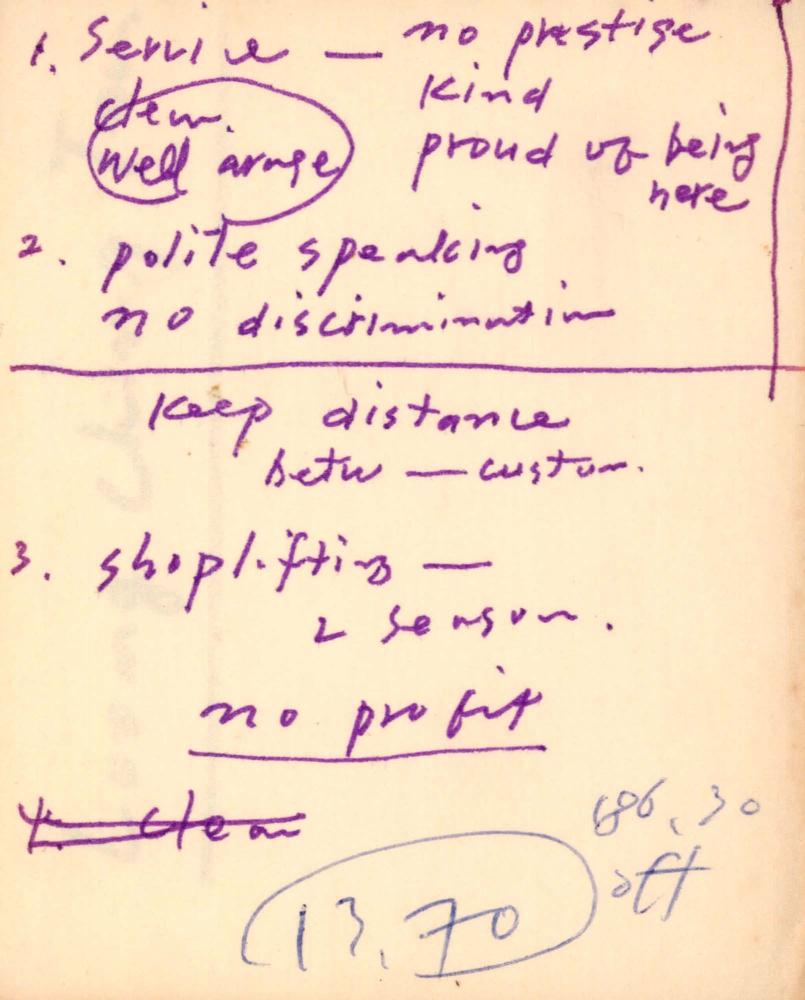 1. Service — no prestige
Kind
clean.
well arnge
proud of being
here
2. polite speaking
no discrimination
Keep distance
betw — custom.
3. shoplifting —
2 season.
no profit
4. clean
86.30
off
13.70